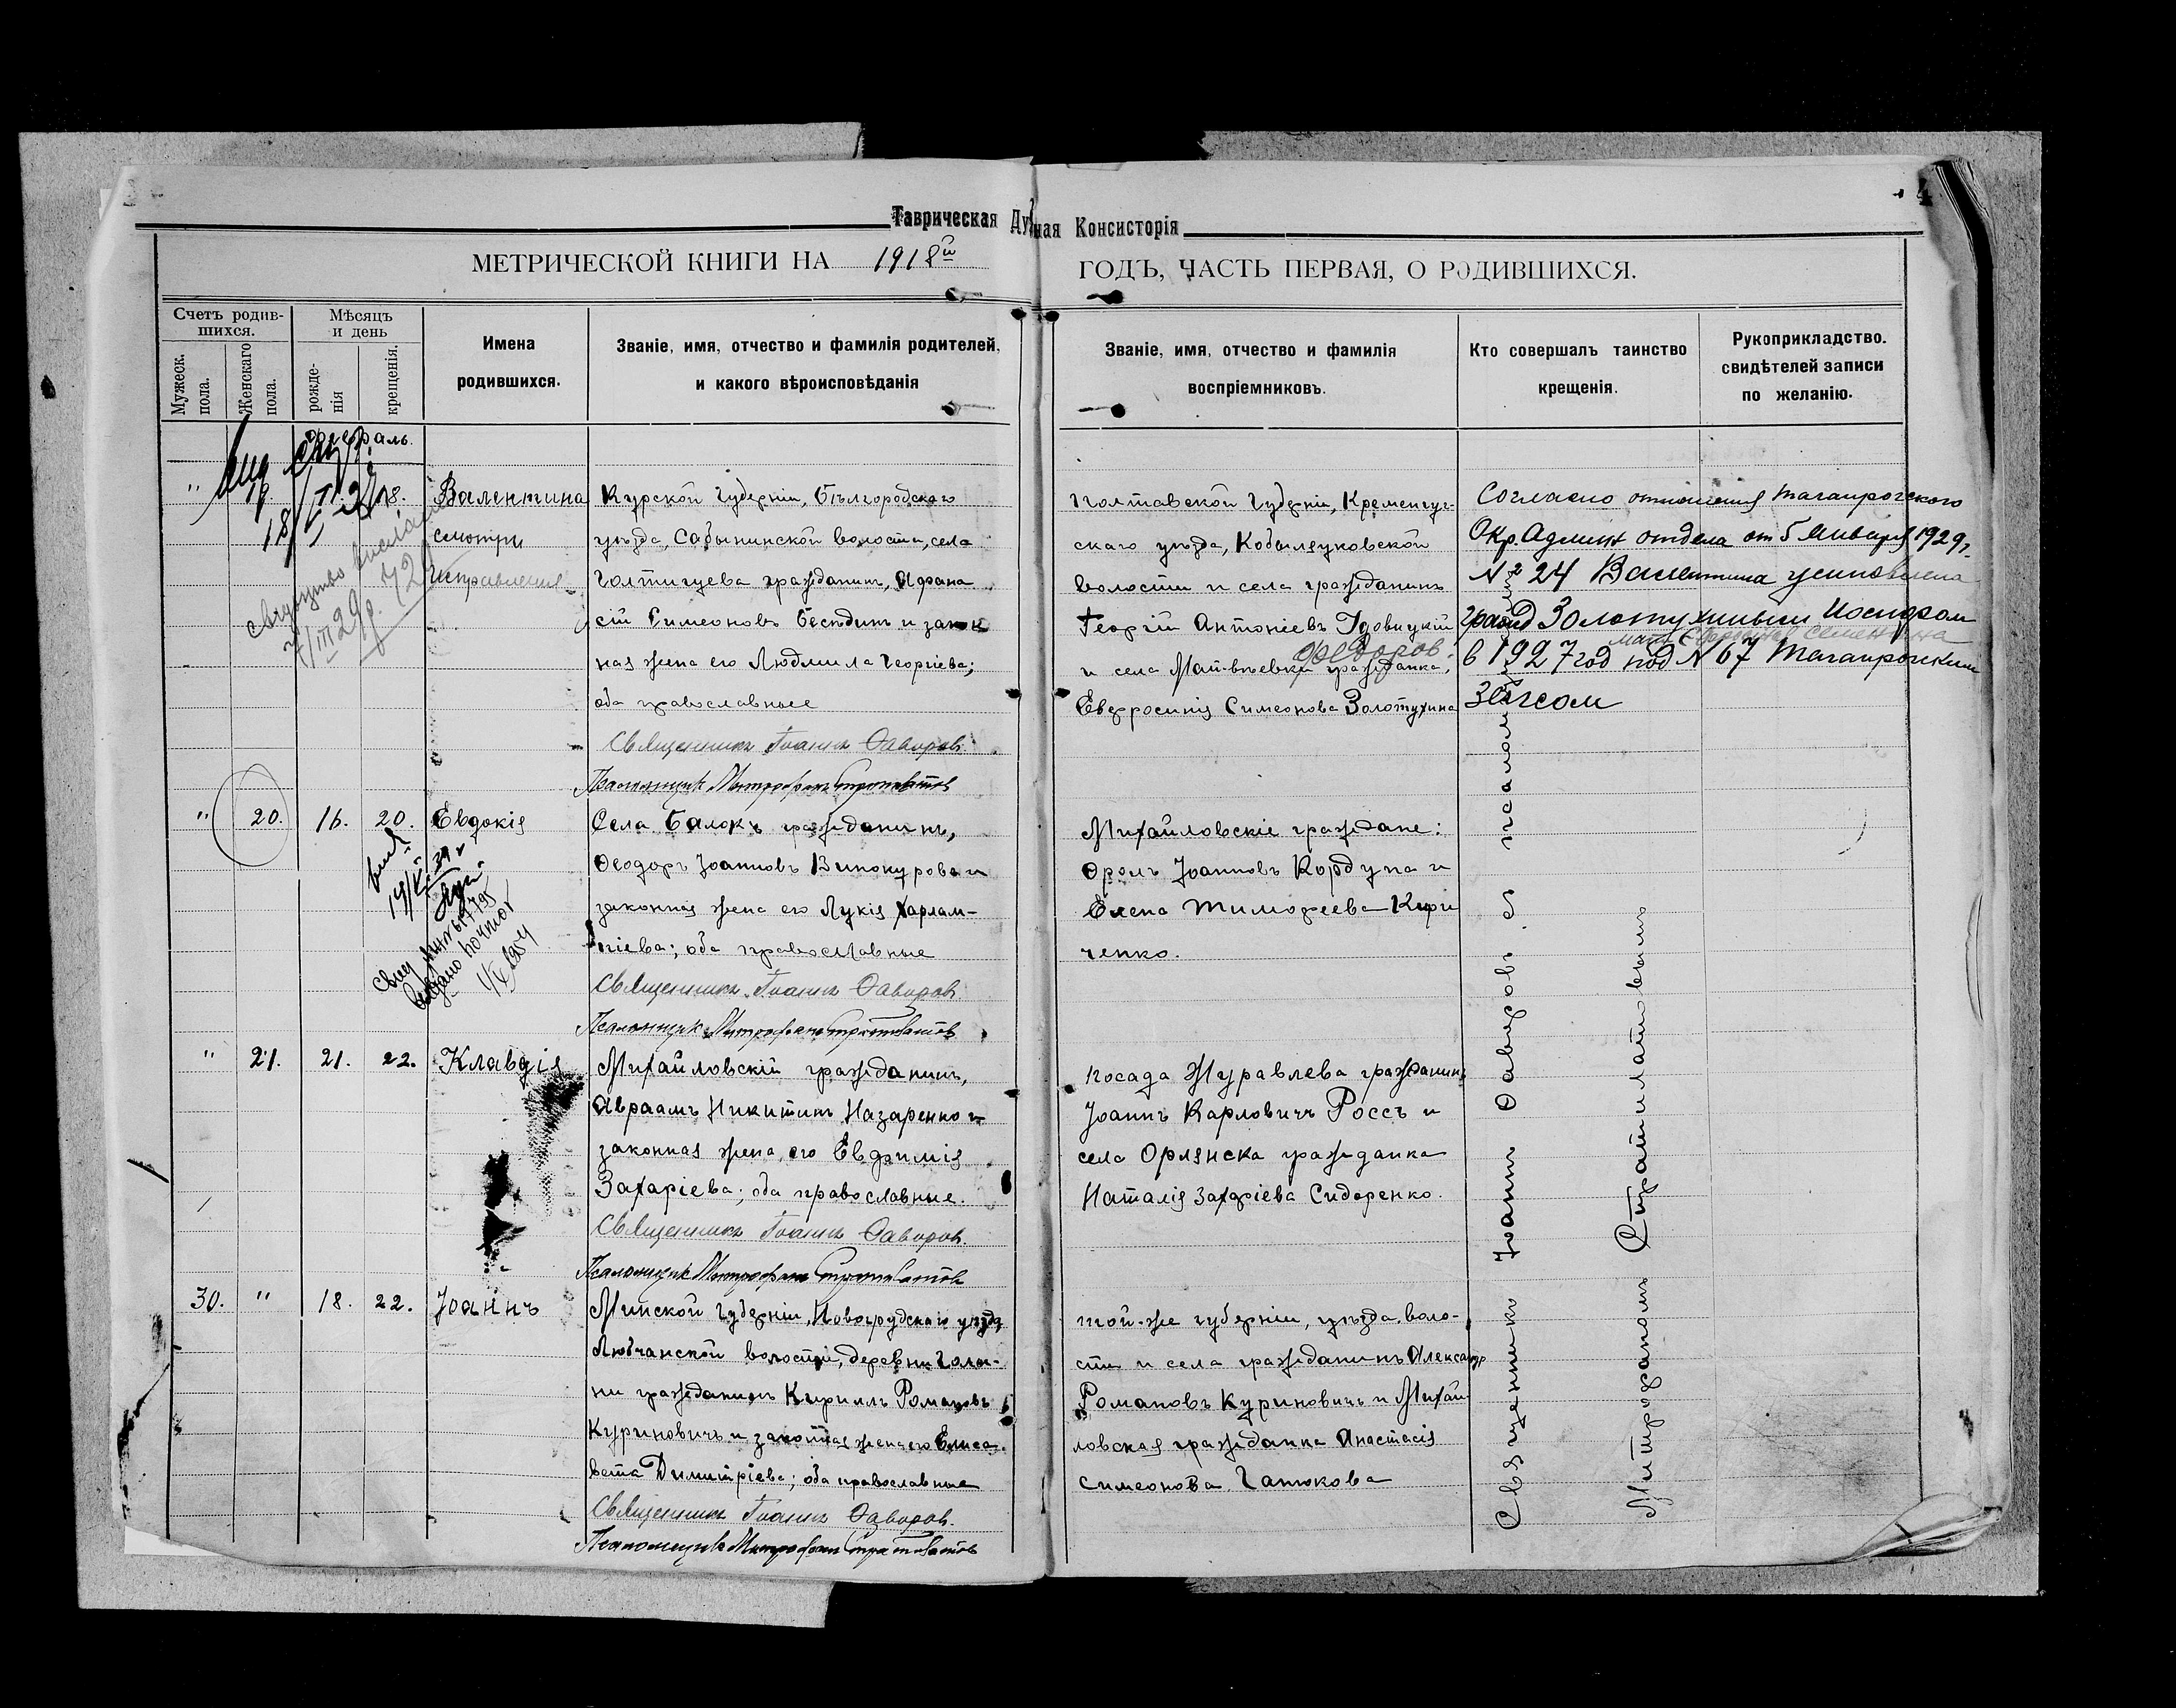 Таврическая Духовная Консисторія
МЕТРИЧЕСКОЙ КНИГИ НА 1918й ГОДЪ, ЧАСТЬ ПЕРВАЯ, О РОДИВШИХСЯ.
Счетъ родив-
шихся.
Мужеск.
пола.
Женскаго
пола.
Мѣсяцъ
и день
рожде-
нія
крещенія.
Имена
родившихся.
Званіе, имя, отчество и фамилія родителей,
и какого вѣроисповѣданія
Званіе, имя, отчество и фамилія
воспріемниковъ.
Кто совершалъ таинство
крещенія.
Рукоприкладство.
свидѣтелей записи
по желанію.
" 18. Валентина
смотри
исправленія
Курской губерніи, Бѣлгородскаго
уѣзда, Сабынинской волости, села
гражданинъ, Афана
сій Симеоновъ Бесѣдинъ и закон
ная жена его Людмила Георгіева;
оба православные
Священникъ Іоаннъ Фаворовъ.
Псаломщикъ Митрофанъ Стратилатовъ
Полтавской губерніи, Кременчуг-
скаго уѣзда, Кобылячковской
волости и села гражданинъ
Георгій Антоніевъ Гдовицкій
и села Матвѣевки гражданка,
Евфросинія Симеонова Золотухина
Согласно отношения Таганрогского
Окр. Админ отдела от 5 Января 1929г.
№ 24 Валентина усыновлена
гражд Золотухиным Иосифом
мать Ефросиния Семеновна
в 1927 год под № 67 Таганрогским
Загсом
" 20. 16. 20. Евдокія
Села Балокъ гражданинъ,
Ѳеодоръ Іоанновъ Винокуровъ и
законная жена его Лукія Харлам-
піева; оба православные
Священникъ Іоаннъ Фаворовъ.
Псаломщикъ Митрофанъ Стратилатовъ
Михайловскіе граждане:
Фролъ Іоанновъ Кордупа и
Елена Тимофеева Кири
ченко.
" 21. 21. 22. Клавдія
Михайловскій гражданинъ,
Авраамъ Никитинъ Назаренко и
законная жена его Евфимія
Захаріева; оба православные.
Священникъ Іоаннъ Фаворовъ.
Псаломщикъ Митрофанъ Стратилатовъ
посада Журавлева гражданинъ
Іоаннъ Карловичъ Россъ и
села Орлянска гражданка
Наталія Захаріева Сидоренко.
30. " 18. 22. Іоаннъ
Минской губерніи, Новогрудскаго уѣзда
Любчанской волости, деревни
гражданинъ Кириллъ Романовъ
Куриновичъ и законная жена его Елиса-
вета Димитріева; оба православные
Священникъ Іоаннъ Фаворовъ.
Псаломщикъ Митрофанъ Стратилатовъ
той-же губерніи, уѣзда, воло-
сти и села гражданинъ Александръ
Романовъ Куриновичъ и Михай
ловская гражданка Анастасія
Симеонова Ганюкова
Священникъ Іоаннъ Фаворовъ. съ псаломщикомъ
Митрофаномъ Стратилатовымъ